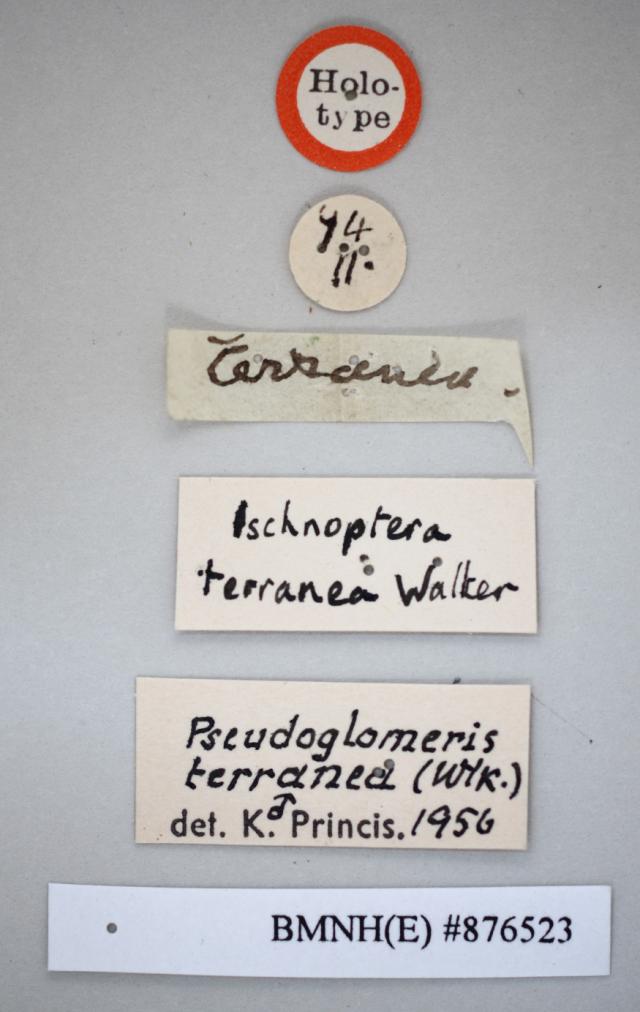 Holo-
type
74
11.
Terranea.
Ischnoptera
terranea Walker
Pseudoglomeris
terranea (Wlk.)
♂
det. K. Princis. 1956
BMNH(E) #876523